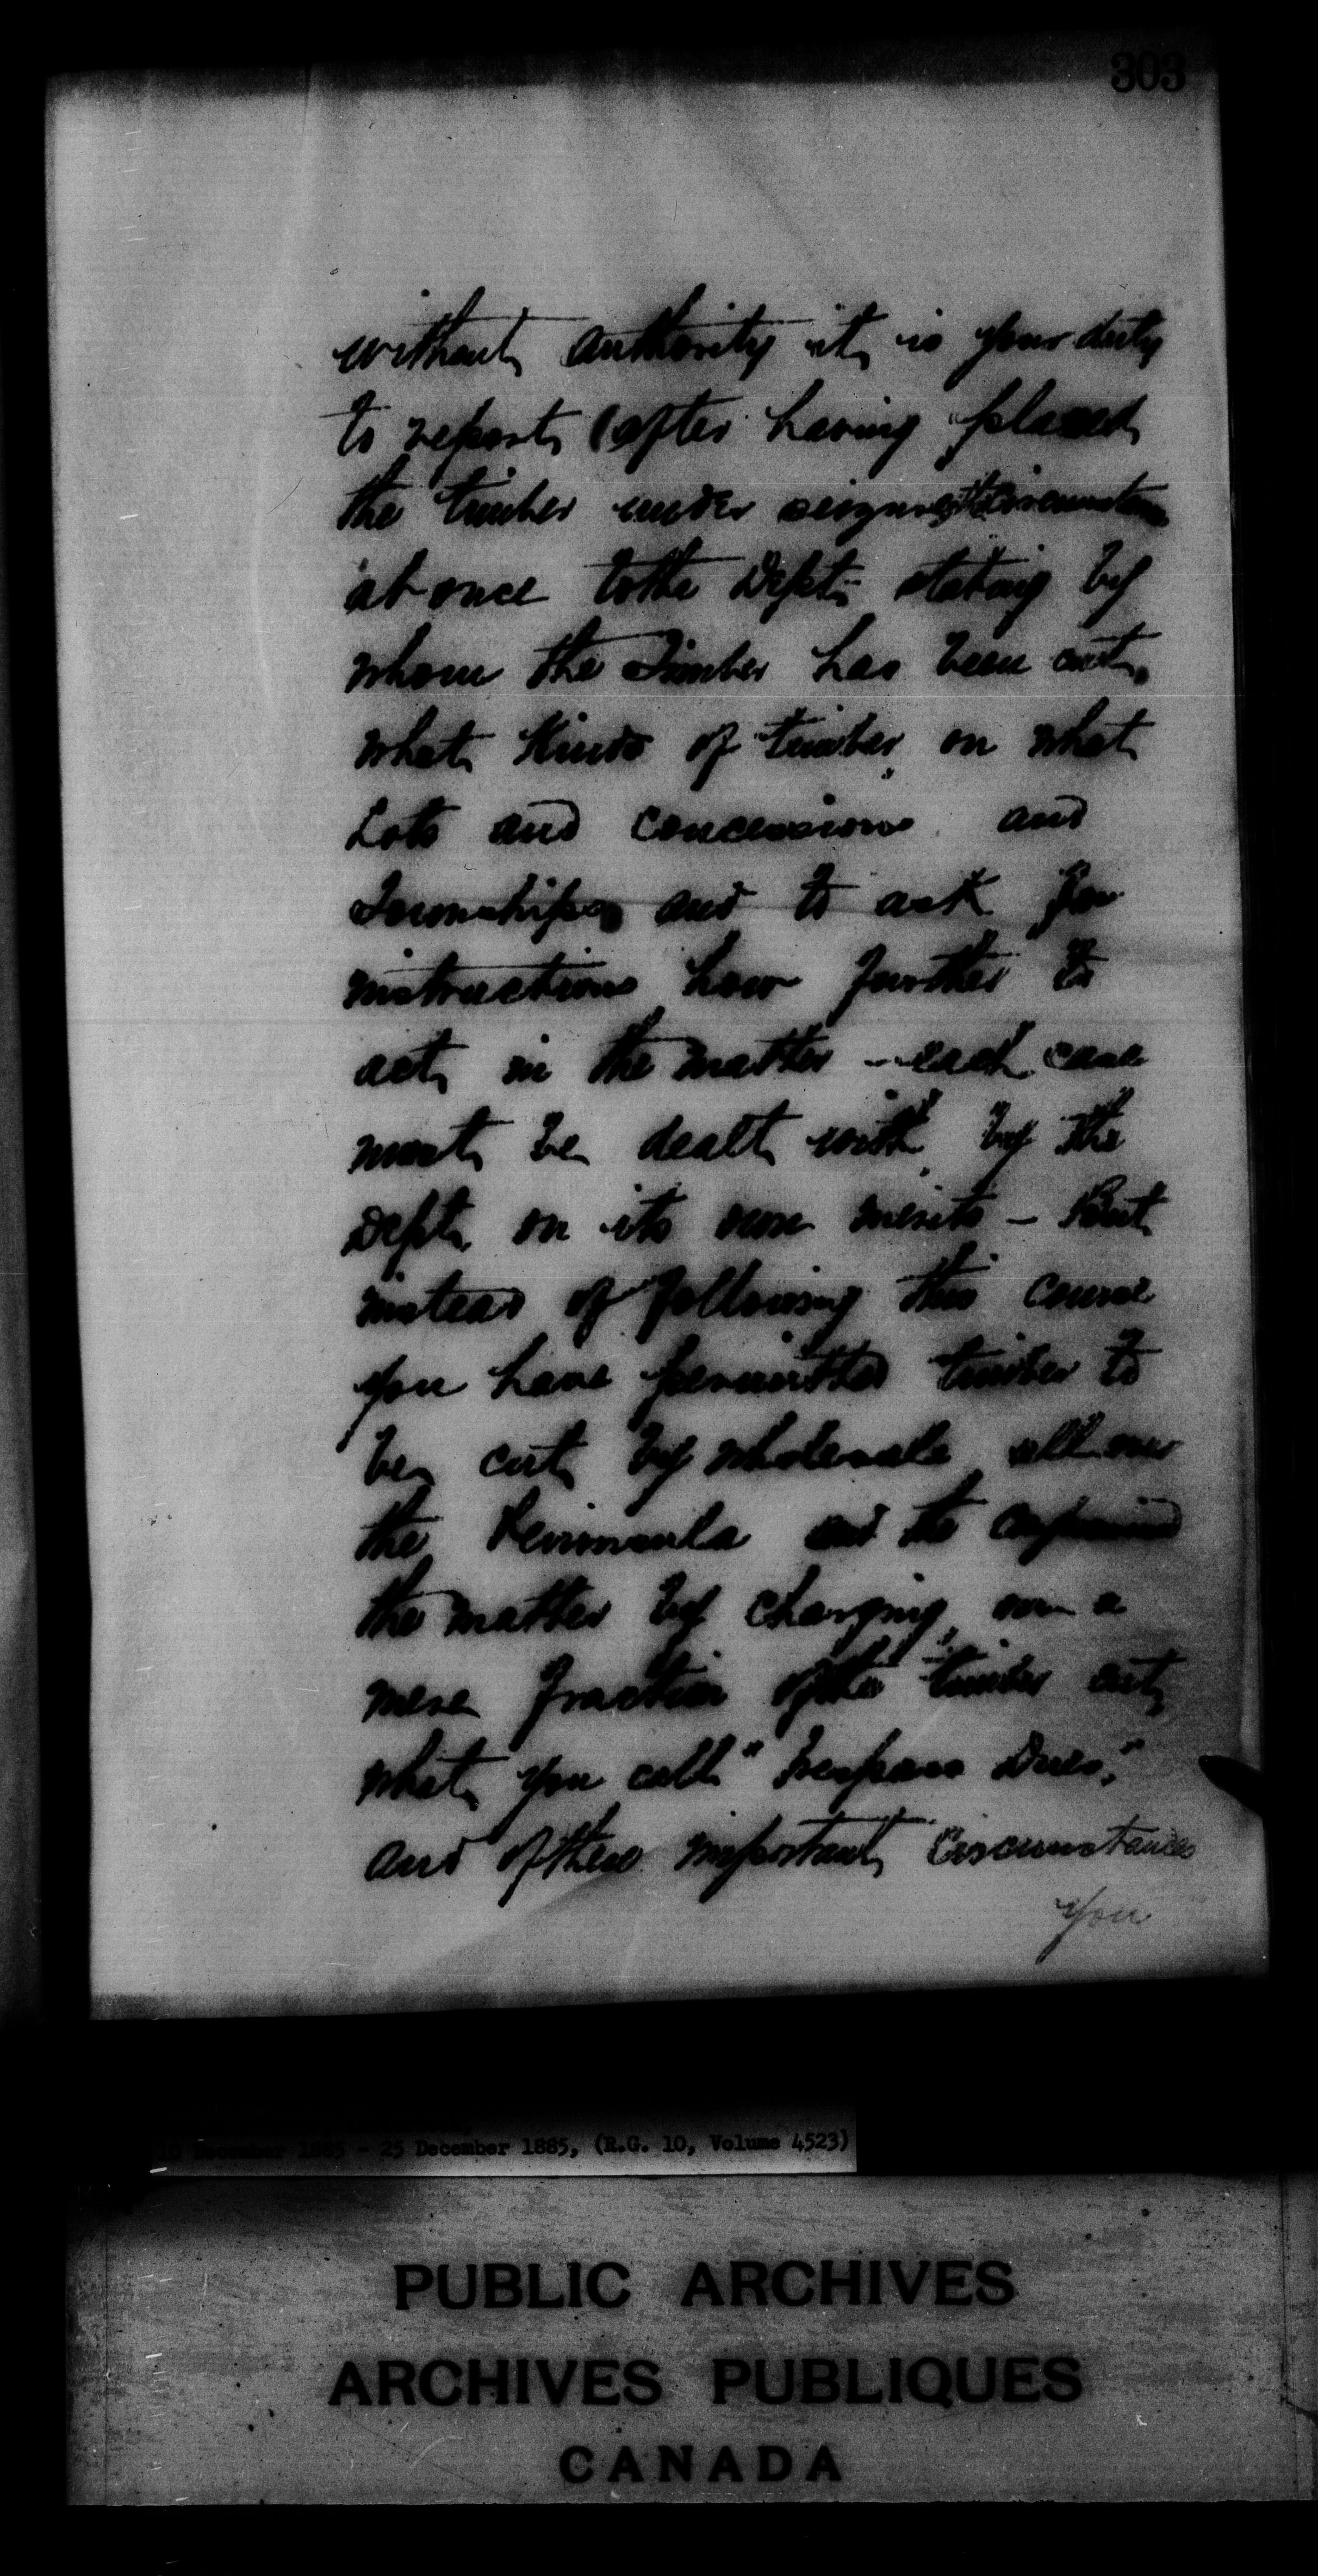 303
without authority it is your duty
to report (after having placed
the timber under seizure) the circumstance
at once to the Dept. stating by
whom the Timber has been cut,
what Kinds of timber, on what
Lots and Concessions and
Townships and to ask for
instructions how further to
act in the matter - each case
must be dealt with by the
Dept. on its own merits - But
instead of following this course
you have permitted timber to
be cut by wholesale all over
the Peninsula and the
the matter by charging, on a
mere fraction of the timber cut,
what you call "Trespass Dues,"
and of these important Circumstances
you
December 1885 - 25 December 1885, (R.G. 10, Volume 4523)
PUBLIC ARCHIVES
ARCHIVES PUBLIQUES
CANADA